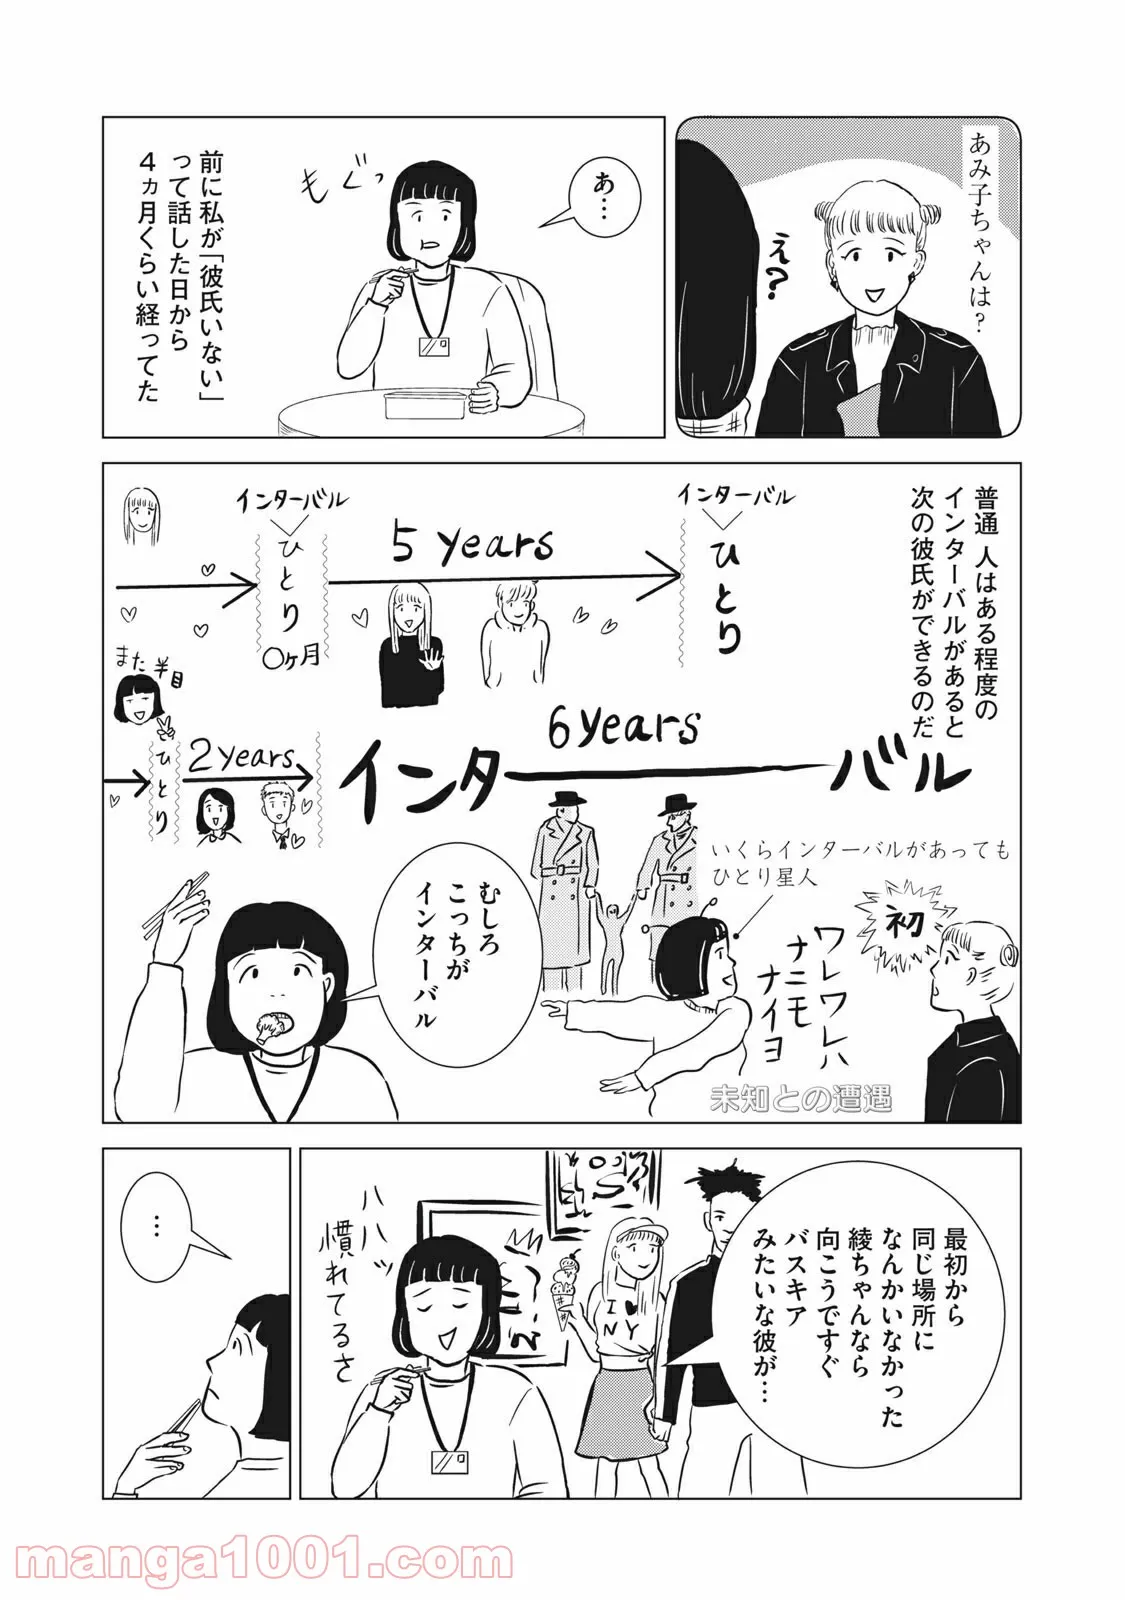 あみ子ちゃんは？
え？
あ…
もぐっ
前に私が「彼氏いない」
って話した日から
4ヵ月くらい経ってた
普通 人はある程度の
インターバルがあると
次の彼氏ができるのだ
インターバル
ひとり
〇ヶ月
5 years
インターバル
ひとり
また半目
ひとり
2 years
6 years
インターバル
いくらインターバルがあっても
ひとり星人
初
ワレワレハ
ナニモ
ナイヨ
未知との遭遇
むしろ
こっちが
インターバル
最初から
同じ場所に
なんかいなかった
綾ちゃんなら
向こうですぐ
バスキア
みたいな彼が…
I ♥
NY
ハハッ
慣れてるさ
…
manga1001.com